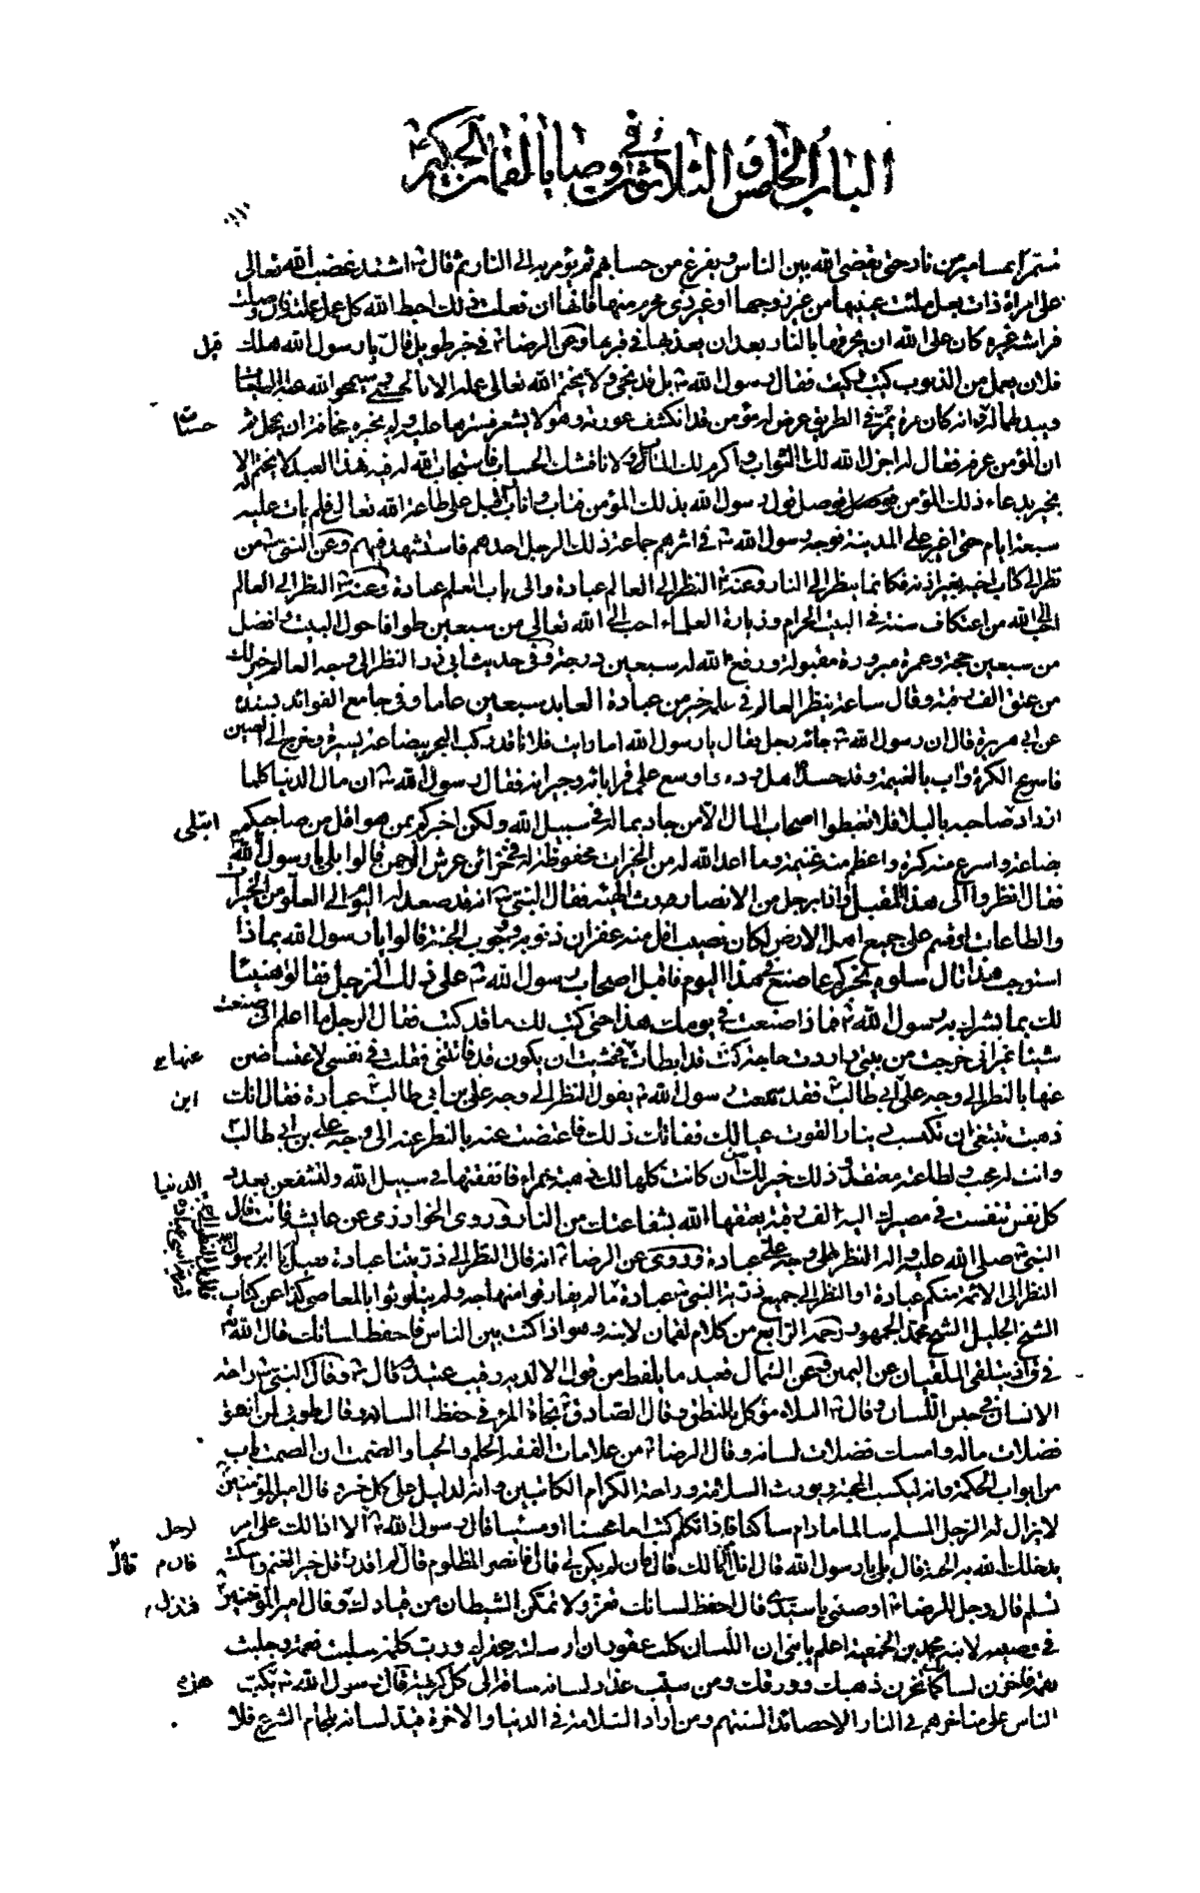 الباب الخامس و الثلاثون في وصايا لقمان الحكيم
بمسامير من نار حتى يقضى الله بين الناس ويفرغ من حسابهم ثم يؤمر به الى النار ثم قال اشتد غضب الله تعالى
على امراة ذات بعل ملئت عينها من غير زوجها او غير ذي محرم منها فانها ان فعلت ذلك احبط الله كل عمل عملته فان اوطئت
فراشه غيره كان على الله ان يحرقها بالنار بعد ان يعذبها في قبرها وعن الرضا في خبر طويل قال يا رسول الله هلك
قيل
فلان يعمل من الذنوب كيت وكيت فقال رسول الله بل قد نجى ولا يختم الله تعالى عمله الا بالحسنى وسيمحو الله عنه السيئات
ويبدلها له انه كان مرة يمر في الطريق عرض له مؤمن قد انكشف عورته وهو لا يشعر فسترها عليه ولم يخبره مخافة ان يخجل ثم
حسنات
ان المؤمن عرفه فقال له اجزل الله لك الثواب واكرم لك المآب ولا ناقشك الحساب فاستجاب الله له فيه فهذا العبد لا يختم له الا
بخير بدعاء ذلك المؤمن فوصل قول رسول الله بذلك المؤمن فتاب واناب واقبل على طاعة الله تعالى فلم يات عليه
سبعة ايام حتى اغير على المدينة فوجه رسول الله في اثرهم جماعة ذلك الرجل احدهم فاستشهد فيهم وعن النبي من
نظر الى كتاب اخيه بغير اذنه فكانما ينظر الى النار وعنه النظر الى العالم عبادة والى باب العالم عبادة وعنه النظر الى العالم
احب الى الله من اعتكاف سنة في البيت الحرام وزيارة العلماء احب الى الله تعالى من سبعين طوافا حول البيت وافضل
من سبعين حجة وعمرة مبرورة مقبولة ورفع الله له سبعين درجة وفي حديث ابي ذر النظر الى وجه العالم خير لك
من عتق الف رقبة وقال ساعة ينظر العالم في علمه خير من عبادة العابد سبعين عاما وفي جامع الفوائد بسنده
عن ابي هريرة قال ان رسول الله جائه رجل فقال يا رسول الله اما رايت فلانا قد ركب البحر ببضاعة يسيرة وخرج الى الصين
فاسرع الكرة واب بالغنيمة وقد حسده اهل وده واوسع على قراباته وجيرانه فقال رسول الله ان مال الدنيا كلما
ازداد صاحبه بالبلاء فلا تغبطوا اصحاب المال الا من جاد بماله في سبيل الله ولكن اخبركم بمن هو اقل من صاحبكم
ابتلى
بضاعة واسرع منه كرة واعظم منه غنيمة وما اعد الله له من الخيرات محفوظة له في خزائن عرش الرحمن قالوا بلى يا رسول الله
فقال انظروا الى هذا المقبل واذا برجل من الانصار رث الهيئة فقال النبي انه قد صعد له اليوم الى العلو من الخيرات
والطاعات لو قسم على جميع اهل الارض لكان نصيب اقل منه غفران ذنوبه ووجوب الجنة قالوا يا رسول الله بماذا
استوجب هذا قال سلوه يخبركم عما صنع في هذا اليوم فاقبل اصحاب رسول الله على ذلك الرجل فقالوا هنيئا
لك بما بشرك به رسول الله فماذا صنعت في يومك هذا حتى كتب لك ما قد كتب فقال الرجل ما اعلم انى صنعت
شيئا غير اني خرجت من بيتي واردت حاجة كنت قد ابطات فخشيت ان يكون قد فاتتني فقلت في نفسي لاعتساضن
عنها
عنها بالنظر الى وجه علي ابي طالب فقد سمعت رسول الله يقول النظر الى وجه علي بن ابي طالب عبادة فقال انك
ابن
ذهبت تبتغي ان تكسب دينارا لقوت عيالك ففاتك ذلك فاعتضت عنه بالنظر عنه الى وجه علي بن ابي طالب
وانت له محب ولطاعته معتقد ذلك خير لك من ان كانت كلها لك ذهبة حمراء فانفقتها في سبيل الله ولتشفعن بعدد
الدنيا
كل نفس تنفست في مصيرك اليه الف رقبة يعتقها الله بشفاعتك من النار وروى الخوارزمي عن عايشة قالت قال
النبي صلى الله عليه واله النظر الى وجه علي عبادة وروى عن الرضا انه قال النظر الى ذريتنا عبادة فقيل يا ابن رسول الله
النظر الى الائمة منكم عبادة او النظر الى جميع ذرية النبي عبادة ما لم يفارقوا منهاجه ولم يتلوثوا بالمعاصي كذا عن كتاب
الشيخ الجليل الشيخ محمد الجمهور رحمه الرابع من كلام لقمان لابنه وهو اذا كنت بين الناس فاحفظ لسانك قال الله
في ق اذ يتلقى المتلقيان عن اليمين وعن الشمال قعيد ما يلفظ من قول الا لديه رقيب عتيد وقال النبي راحة
الانسان في حبس اللسان وقال البلاء موكل بالمنطق وقال الصادق نجاة المرء في حفظ اللسان وقال طوبى لمن انفق
فضلات ماله وامسك فضلات لسانه وقال الرضا من علامات الفقه الحلم والحياء والصمت ان الصمت باب
من ابواب الحكمة وانه ليكسب المحبة ويورث السلامة وراحة الكرام الكاتبين وانه لدليل على كل خير قال امير المؤمنين
لا يزال الرجل المسلم سالما ما دام ساكتا فاذا تكلم كتب اما محسنا او مسيئا قال رسول الله الا ادلك على امر
لرجل
يدخلك الله به الجنة قال بلى يا رسول الله قال انل مما انالك قال فان لم يكن لي قال فانصر المظلوم قال لم اقدر قال قل خير تغنم واسكت
قال م
قال
تسلم قال رجل للرضا اوصني يا سيدي قال احفظ لسانك تعز ولا تمكن الشيطان من قيادك وقال امير المؤمنين
فتذل م
في وصيته لابنه محمد بن الحنفية اعلم يا بني ان اللسان كلب عقور ان ارسلته عقرك ورب كلمة سلبت نعمة وجلبت
نقمة فاخزن لسانك كما تخزن ذهبك وورقك ومن سيب عذار لسانه ساقه الى كل كريهة قال رسول الله يكب
هل
الناس على مناخرهم في النار الا حصائد السنتهم ومن اراد السلامة في الدنيا والاخرة قيد لسانه بلجام الشرع فلا